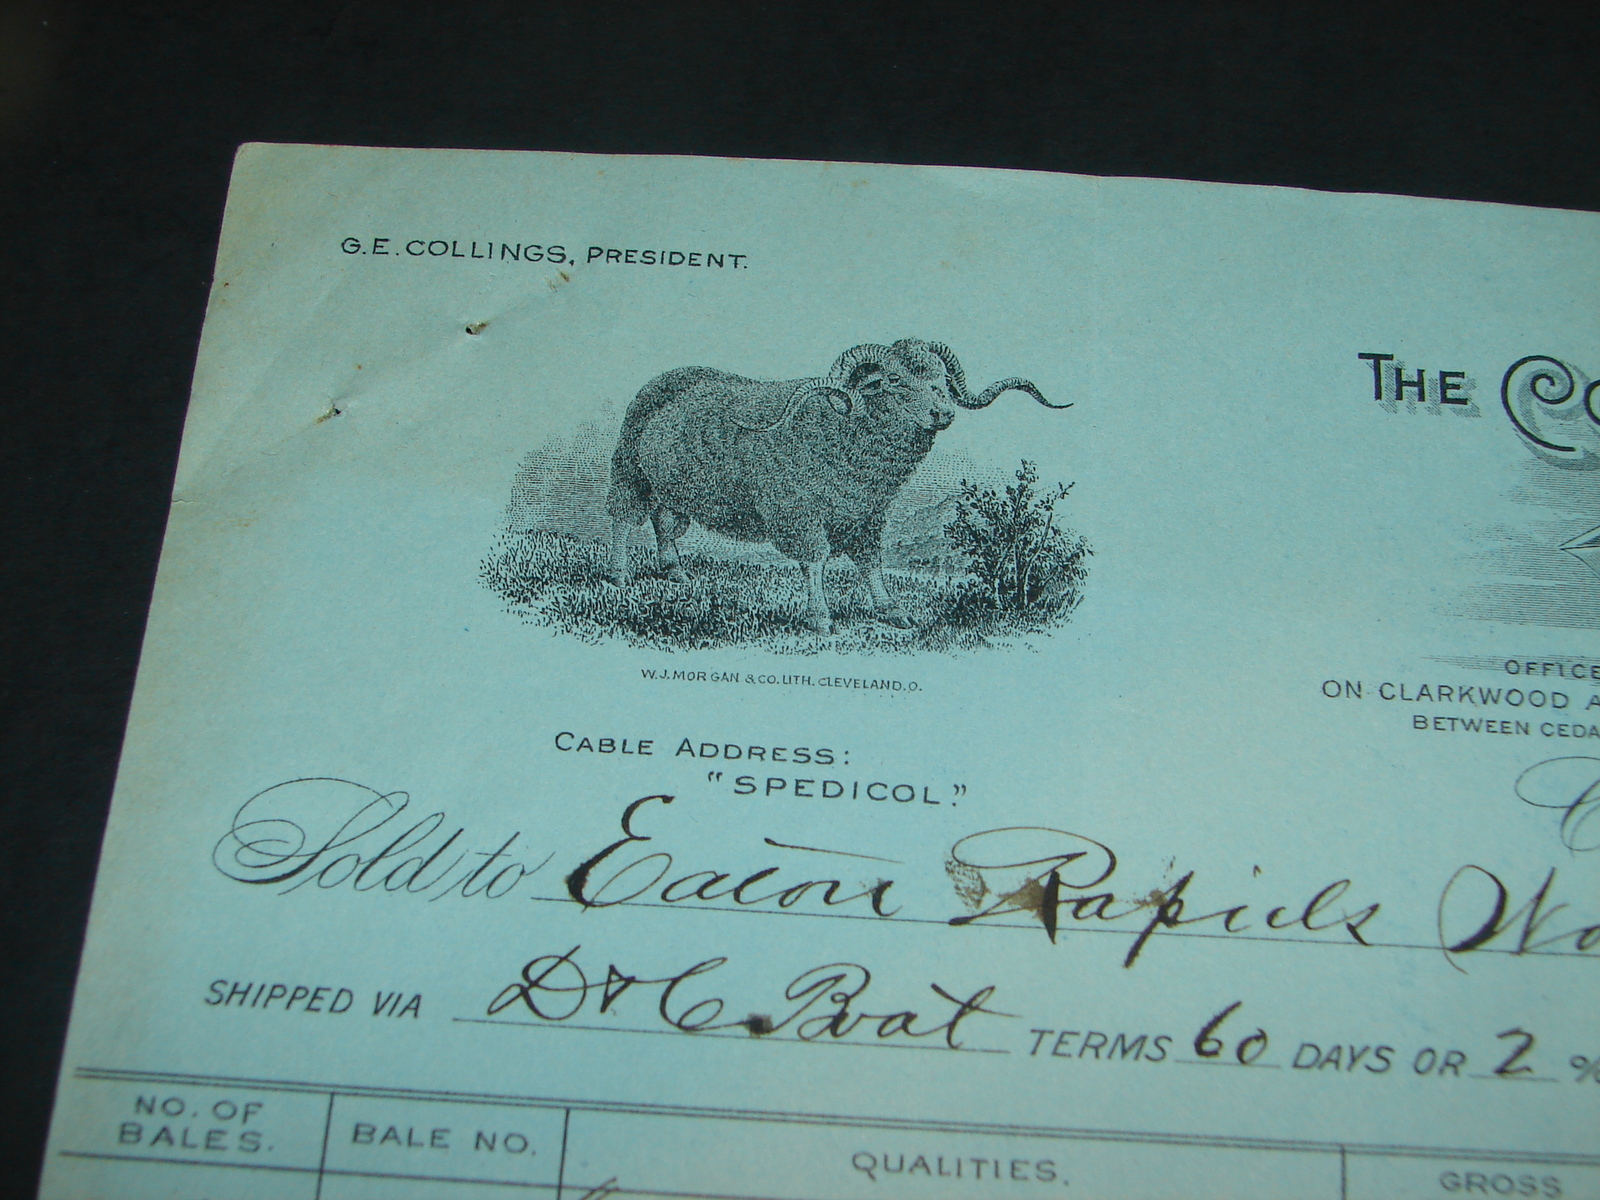 G.E. COLLINGS, PRESIDENT.
THE CO
W.J. MORGAN & CO. LITH. CLEVELAND. O.
OFFICE
ON CLARKWOOD A
BETWEEN CEDA
CABLE ADDRESS:
"SPEDICOL."
Sold to Eaton Rapids Wo
SHIPPED VIA D & C Boat TERMS 60 DAYS OR 2 %
NO. OF BALES. BALE NO. QUALITIES. GROSS